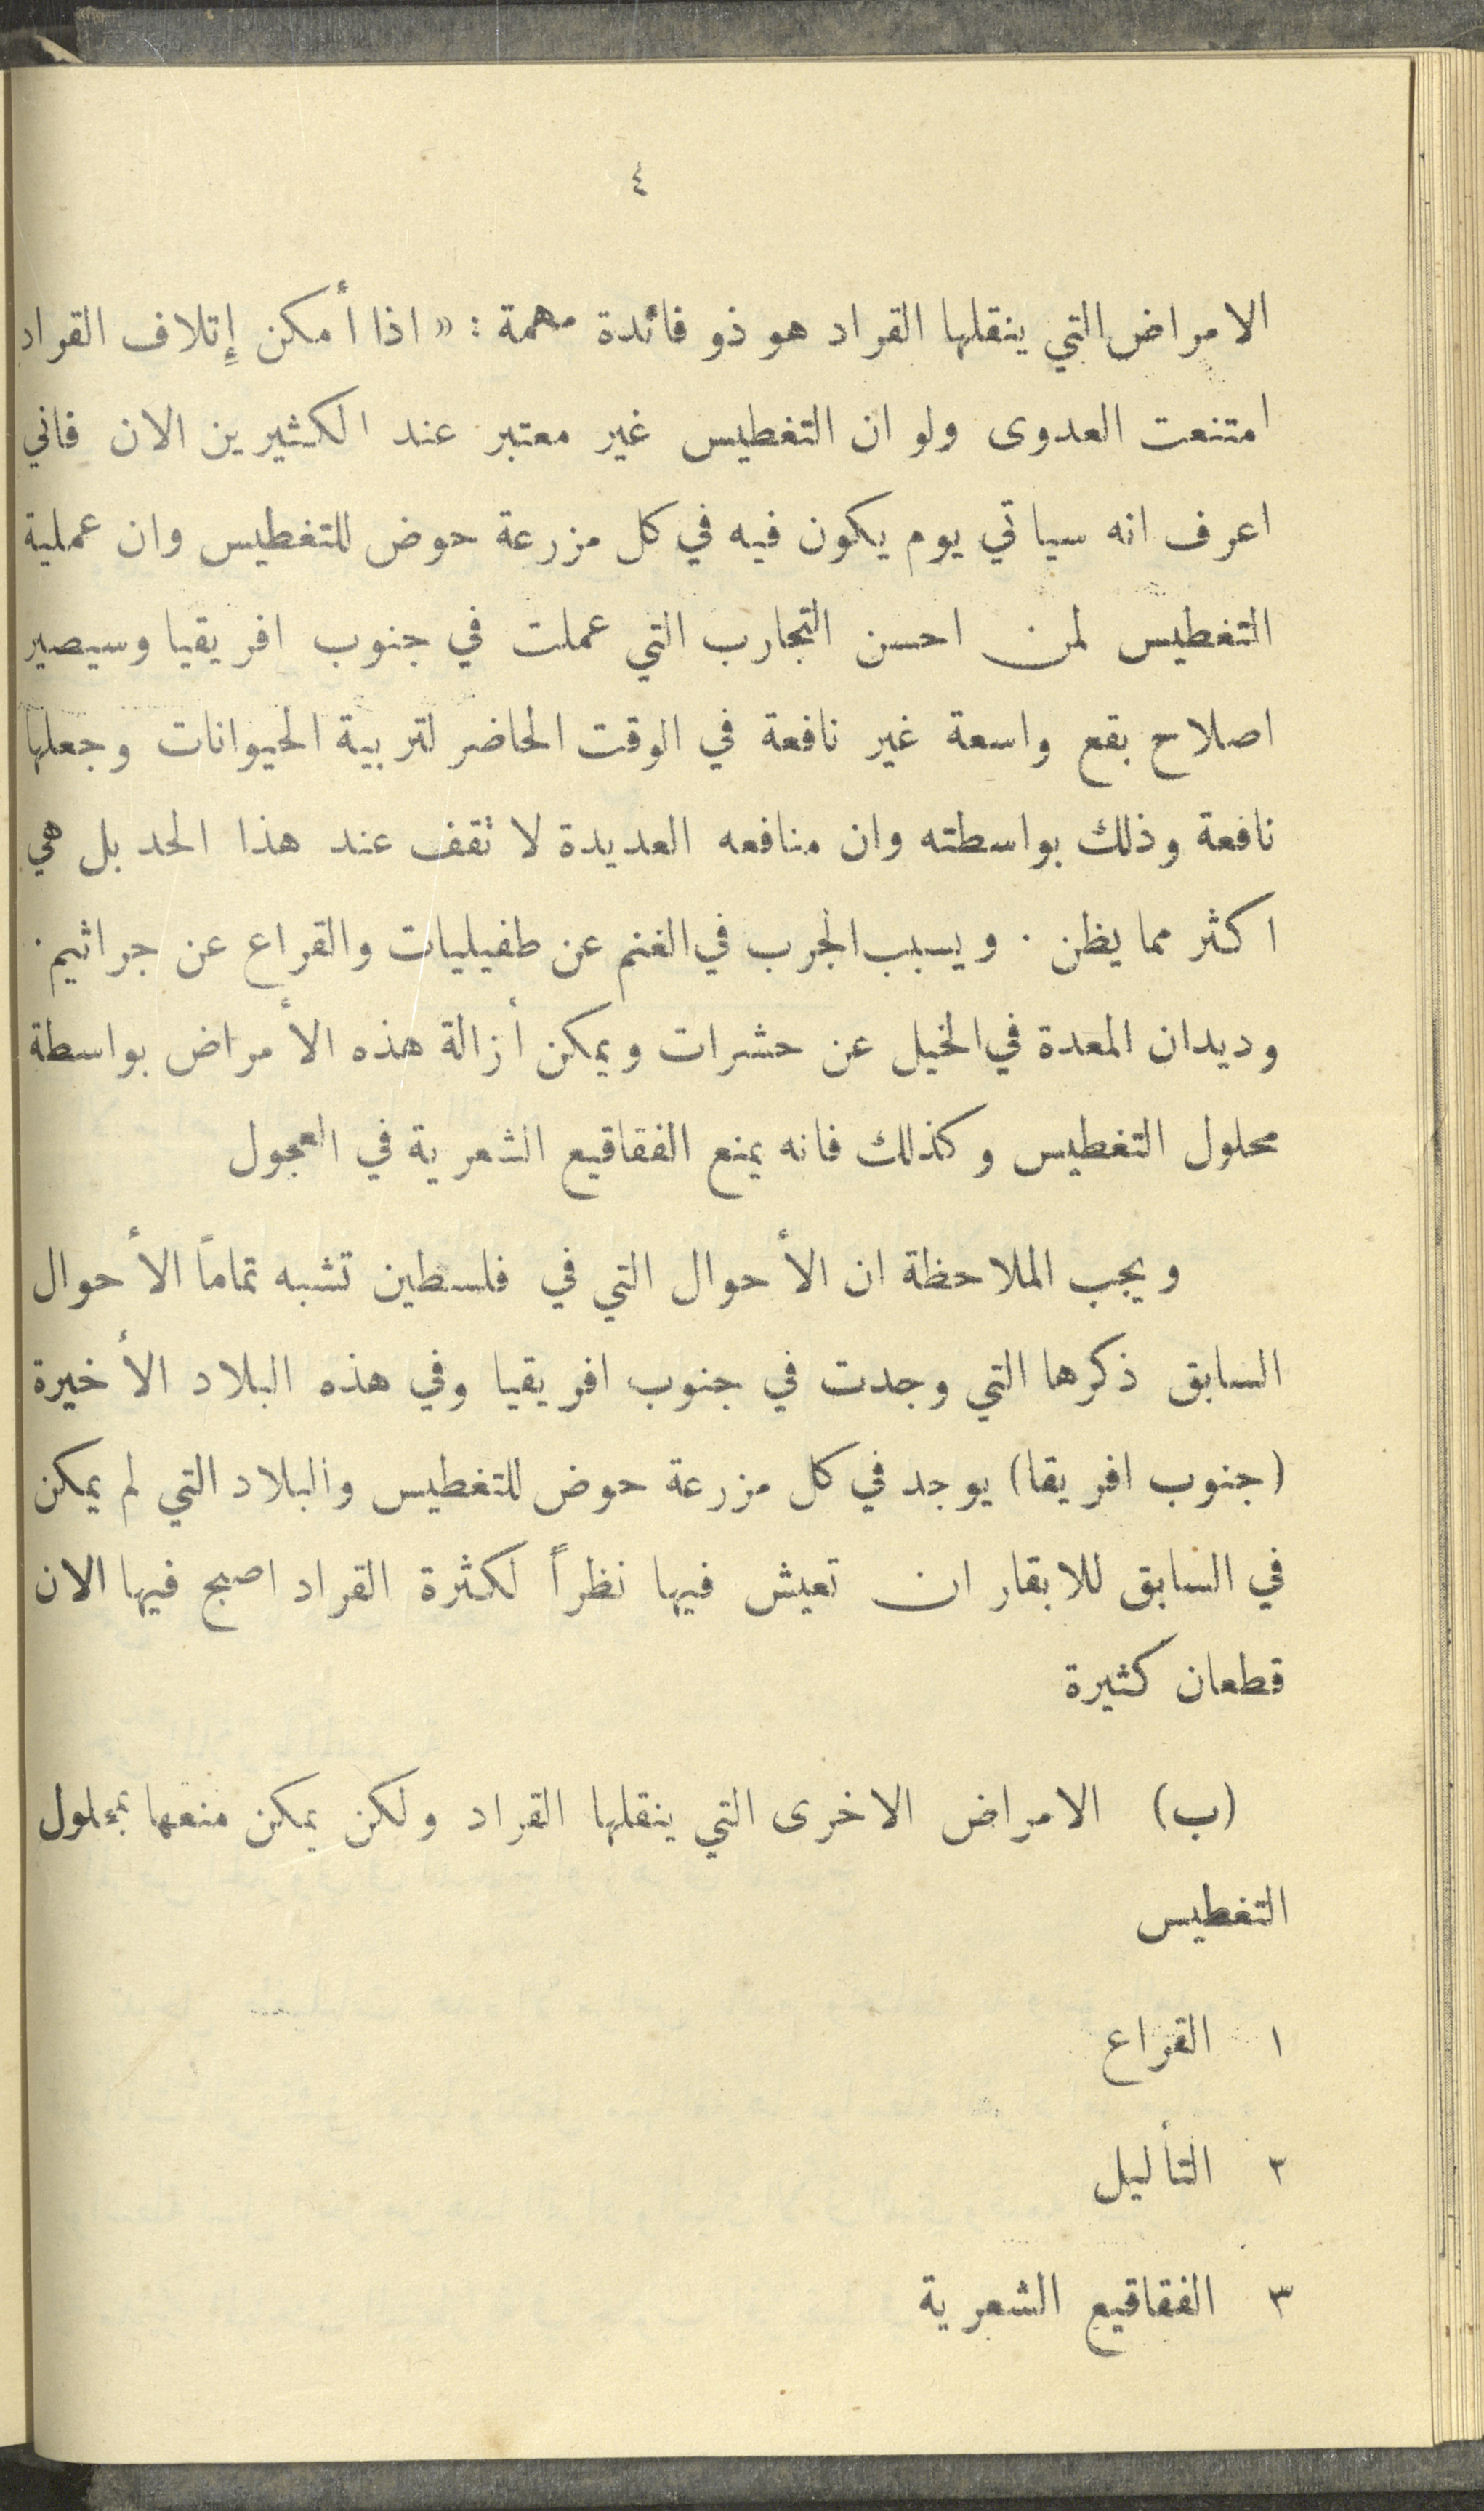 ٤
الامراض التي ينقلها القراد هو ذو فائدة مهمة : «اذا أمكن إتلاف القراد
امتنعت العدوى ولو ان التغطيس غير معتبر عند الكثيرين الان فاني
اعرف انه سياتي يوم يكون فيه في كل مزرعة حوض للتغطيس وان عملية
التغطيس لمن احسن التجارب التي عملت في جنوب افريقيا وسيصير
اصلاح بقع واسعة غير نافعة في الوقت الحاضر لتربية الحيوانات وجعلها
نافعة وذلك بواسطته وان منافعه العديدة لا تقف عند هذا الحد بل هي
اكثر مما يظن . ويسبب الجرب في الغنم عن طفيليات والقراع عن جراثيم .
وديدان المعدة في الخيل عن حشرات ويمكن أزالة هذه الأمراض بواسطة
محلول التغطيس وكذلك فانه يمنع الفقاقيع الشعرية في العجول
ويجب الملاحظة ان الأحوال التي في فلسطين تشبه تماماً الأحوال
السابق ذكرها التي وجدت في جنوب افريقيا وفي هذه البلاد الأخيرة
(جنوب افريقا) يوجد في كل مزرعة حوض للتغطيس والبلاد التي لم يمكن
في السابق للابقار ان تعيش فيها نظراً لكثرة القراد اصبح فيها الان
قطعان كثيرة
(ب) الامراض الاخرى التي ينقلها القراد ولكن يمكن منعها بمحلول
التغطيس
١ القراع
٢ التأليل
٣ الفقاقيع الشعرية